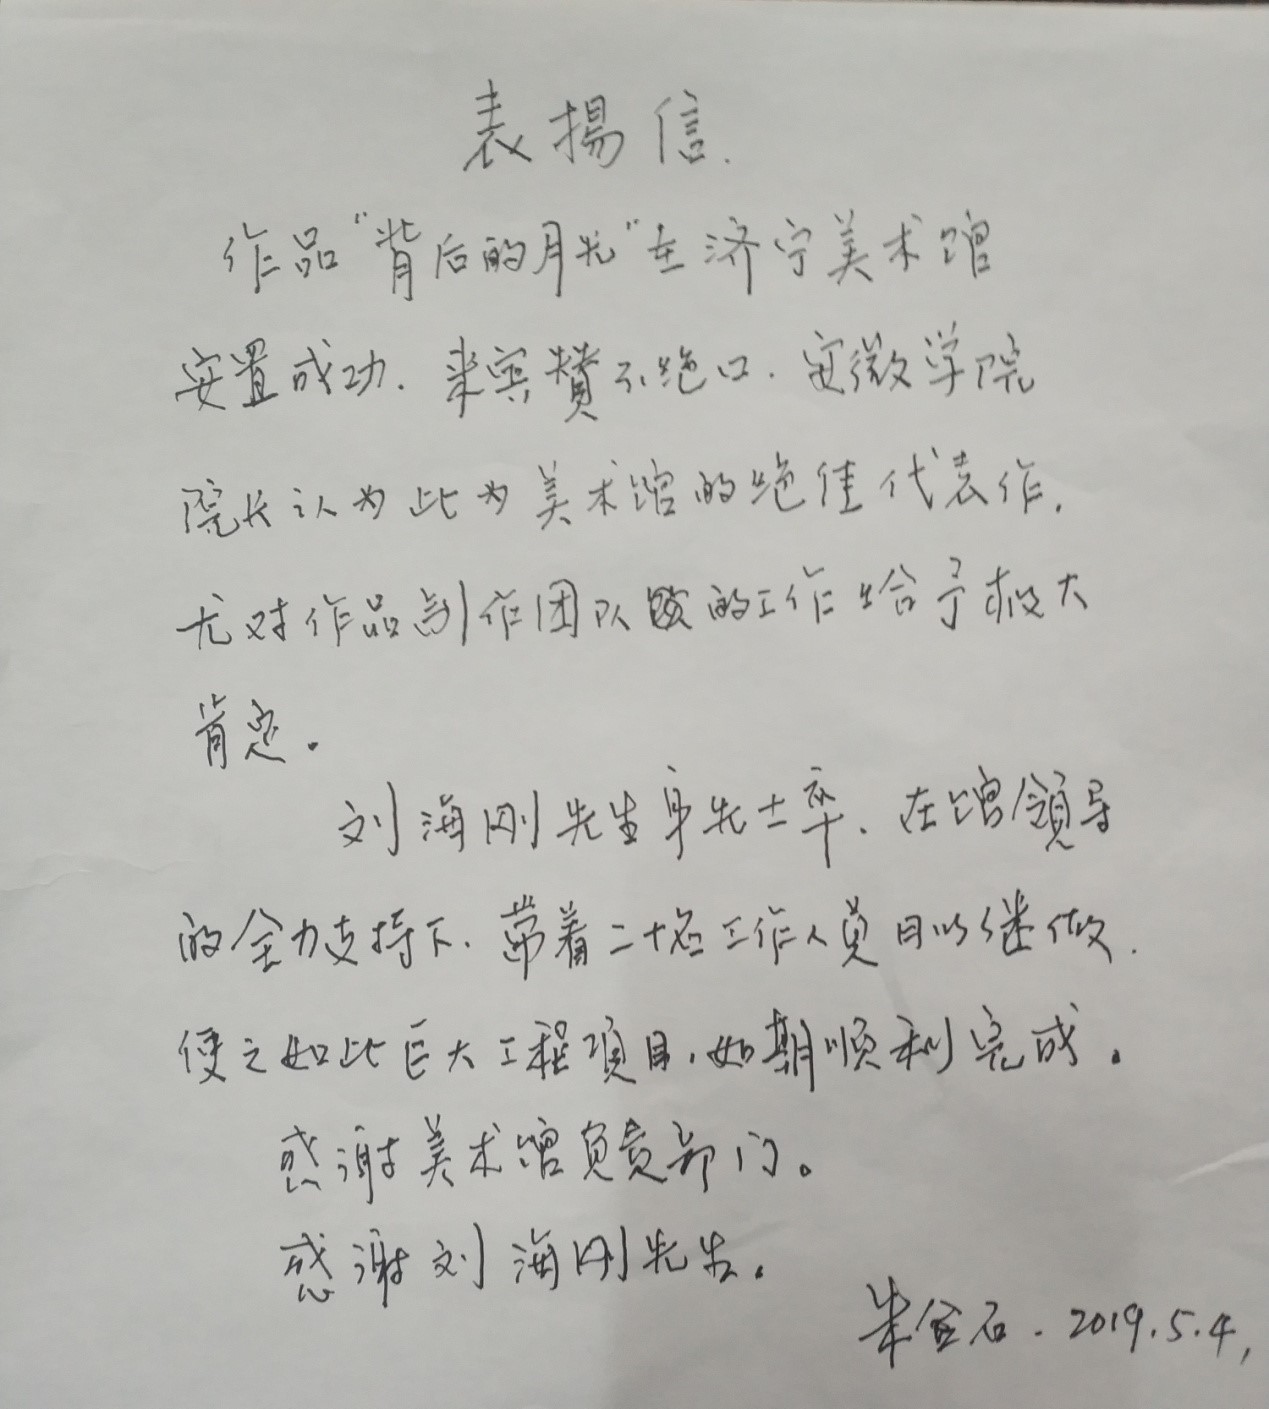 表揚信.
作品“背后的月光”在济宁美术馆
安置成功.来宾赞不绝口.安徽学院
院长认为此为美术馆的绝佳代表作.
尤对作品制作团队的工作给予极大
肯定。
刘海刚先生身先士卒.在馆領导
的全力支持下.带着二十名工作人员日以继做.
使之如此巨大工程項目.如期顺利完成。
感谢美术馆负责部门。
感谢刘海刚先生。
朱金石.2019.5.4,